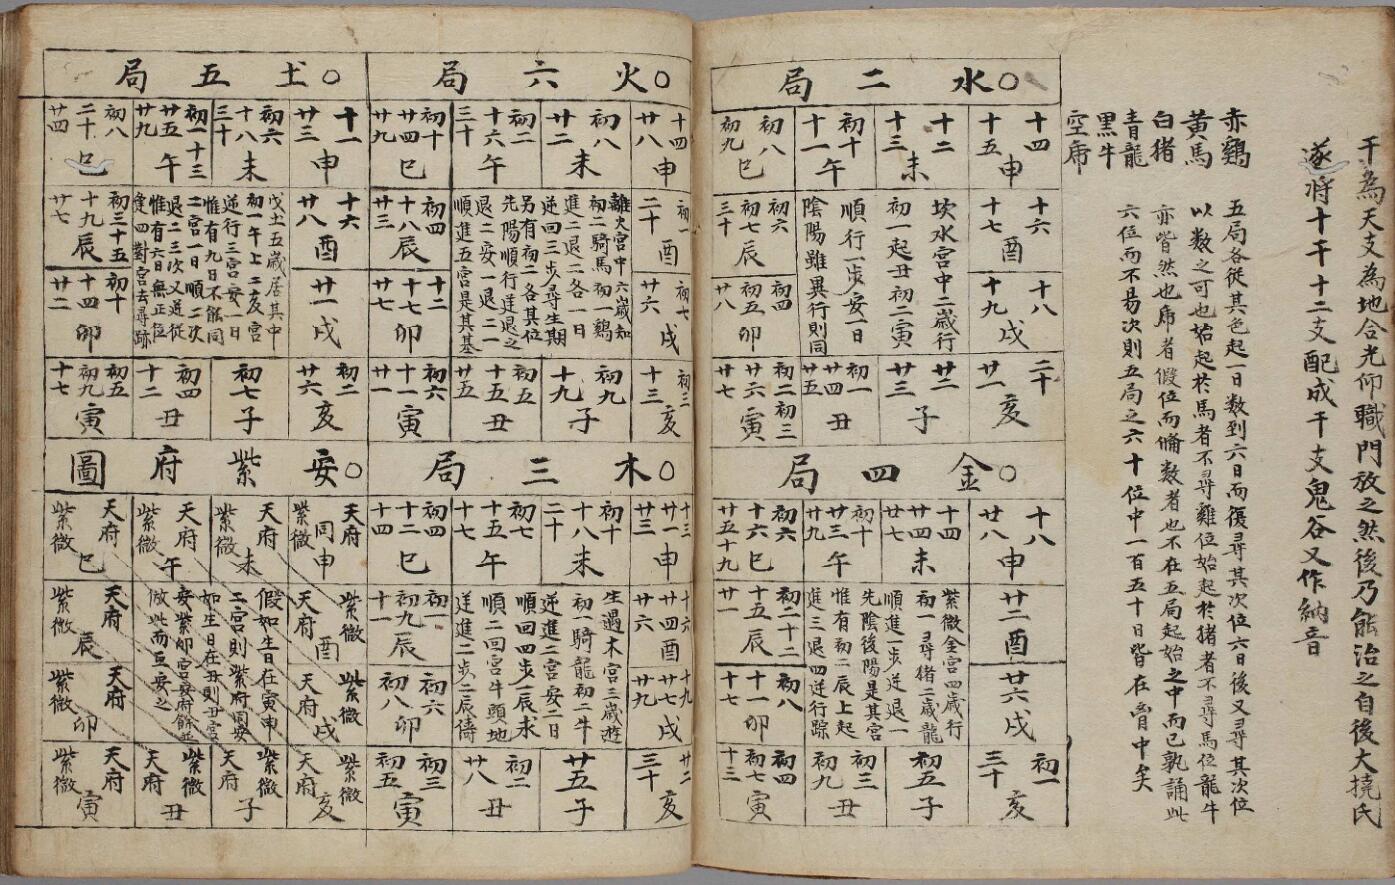 干為天支為地合光仰職門放之然後乃能治之自後大撓氏
遂將十干十二支配成干支鬼谷又作納音
赤鷄 五局各従其色起一日数到六日而復尋其次位六日後又尋其次位
黄馬 以数之可也始起於馬者不尋雞位始起於猪者不尋馬位龍牛
白猪 亦皆然也席者假位而脩数者也不在五局起始之中而已孰誦此
青龍 六位而不易次則五局之六十位中一百五十日皆在胷中矣
黒牛
空席
○水二局
十四 十五 申
十二 十三 未
初十 十一 午
初八 初九 巳
十六 十七 酉
坎水宮中二歳行
初一起丑初二寅
順行一步安一日
陰陽雖異行則同
初六 初七 三十 辰
十八 十九 戌
初四 初五 廿八 卯
二十 廿一 亥
廿二 廿三 子
初一 廿四 廿五 丑
初二 初三 廿六 廿七 寅
○金四局
十八 廿八 申
十四 廿四 廿七 未
初十 廿三 廿九 午
初六 十六 十九 廿五 巳
廿二 酉
紫微金宮四歳行
初一尋猪二歳龍
順進一步逆退一
先陰後陽是其宮
惟有初二辰上起
進三退四逆行踪
初二 十二 十五 廿一 辰
廿六 戌
初八 十一 十七 卯
初一 三十 亥
初五 子
初三 初九 丑
初四 初七 十三 寅
○火六局
十四 廿八 申
初八 廿二 未
初二 十六 三十 午
初十 廿四 廿九 巳
初一 二十 酉
離火宮中六歳知
初二騎馬初一鷄
進二退二各一日
逆回三步尋生期
另有初二各其位
先陽順行逆退之
退二安一退二一
順進五宮是其基
初四 十八 廿三 辰
初七 廿六 戌
十二 十七 廿七 卯
初三 十三 亥
初九 十九 子
初五 十五 廿五 丑
初六 十一 廿一 寅
○木三局
十三 廿一 廿三 申
初十 十八 二十 未
初七 十五 十七 午
初四 十二 十四 巳
十六 廿四 廿六 酉
生遇木宮三歳遊
初一騎龍初二牛
逆進二宮安二日
順回四步辰未
順二回宮牛頭地
逆進二步二辰儔
初一 初九 十一 辰
十九 廿七 廿九 戌
初六 初八 卯
廿二 三十 亥
廿五 子
初二 廿八 丑
初三 初五 寅
○土五局
十一 廿三 申
初六 十八 三十 未
初一 十三 廿五 廿九 午
初八 二十 廿四 巳
十六 廿八 酉
戊土五歳居其中
初一午上二亥宮
逆行三宮安一日
惟有九日不能同
二宮一日順二次
退二三次又逆従
惟有六日無正位
逢四對宮去尋跡
初三 十五 十九 廿七 辰
廿一 戌
初十 十四 廿二 卯
初二 廿六 亥
初七 子
初四 十二 丑
初五 初九 十七 寅
○安紫府圖
天府 同 紫微 申
天府 紫微 未
天府 紫微 午
天府 紫微 巳
紫微 天府 酉
假如生日在寅申
二宮則紫府同安
如生日在丑則丑宮
安紫卯宮安府餘並
倣此而互安之
天府 紫微 辰
紫微 天府 戌
天府 紫微 卯
紫微 天府 亥
紫微 天府 子
紫微 天府 丑
天府 紫微 寅